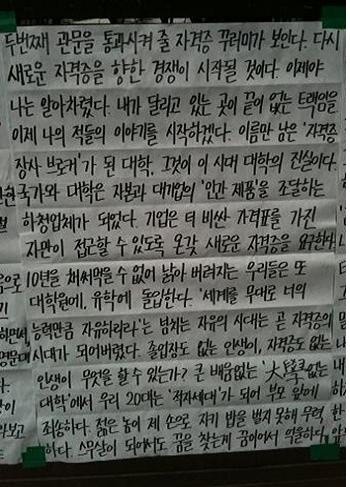 두번째 관문을 통과시켜 줄 자격증 꾸러미가 보인다. 다시
새로운 자격증을 향한 경쟁이 시작될 것이다. 이제야
나는 알아차렸다. 내가 달리고 있는 곳이 끝이 없는 트랙임을
이제 나의 적들의 이야기를 시작하겠다. 이름만 남은 '자격증
장사 브로커'가 된 대학, 그것이 이 시대 대학의 진실이다.
국가와 대학은 자본과 대기업의 '인간 제품'을 조달하는
하청업체가 되었다. 기업은 더 비싼 가격표를 가진
자만이 접근할 수 있도록 온갖 새로운 자격증을 요구한다
10년을 채 써먹을 수 없어 낡아 버려지는 우리들은 또
대학원에, 유학에 돌입한다. '세계를 무대로 너의
능력만큼 자유하리라'는 넘치는 자유의 시대는 곧 자격증의
시대가 되어버렸다. 졸업장도 없는 인생이, 자격증도 없는
인생이 무엇을 할 수 있는가? 큰 배움없는 '大學없는
대학'에서 우리 20대는 '적자세대'가 되어 부모 앞에
죄송하다. 젊은 놈이 제 손으로 자기 밥을 벌지 못해 무력
하다. 스무살이 되어서도 꿈을 찾는게 꿈이어서 억울하다.